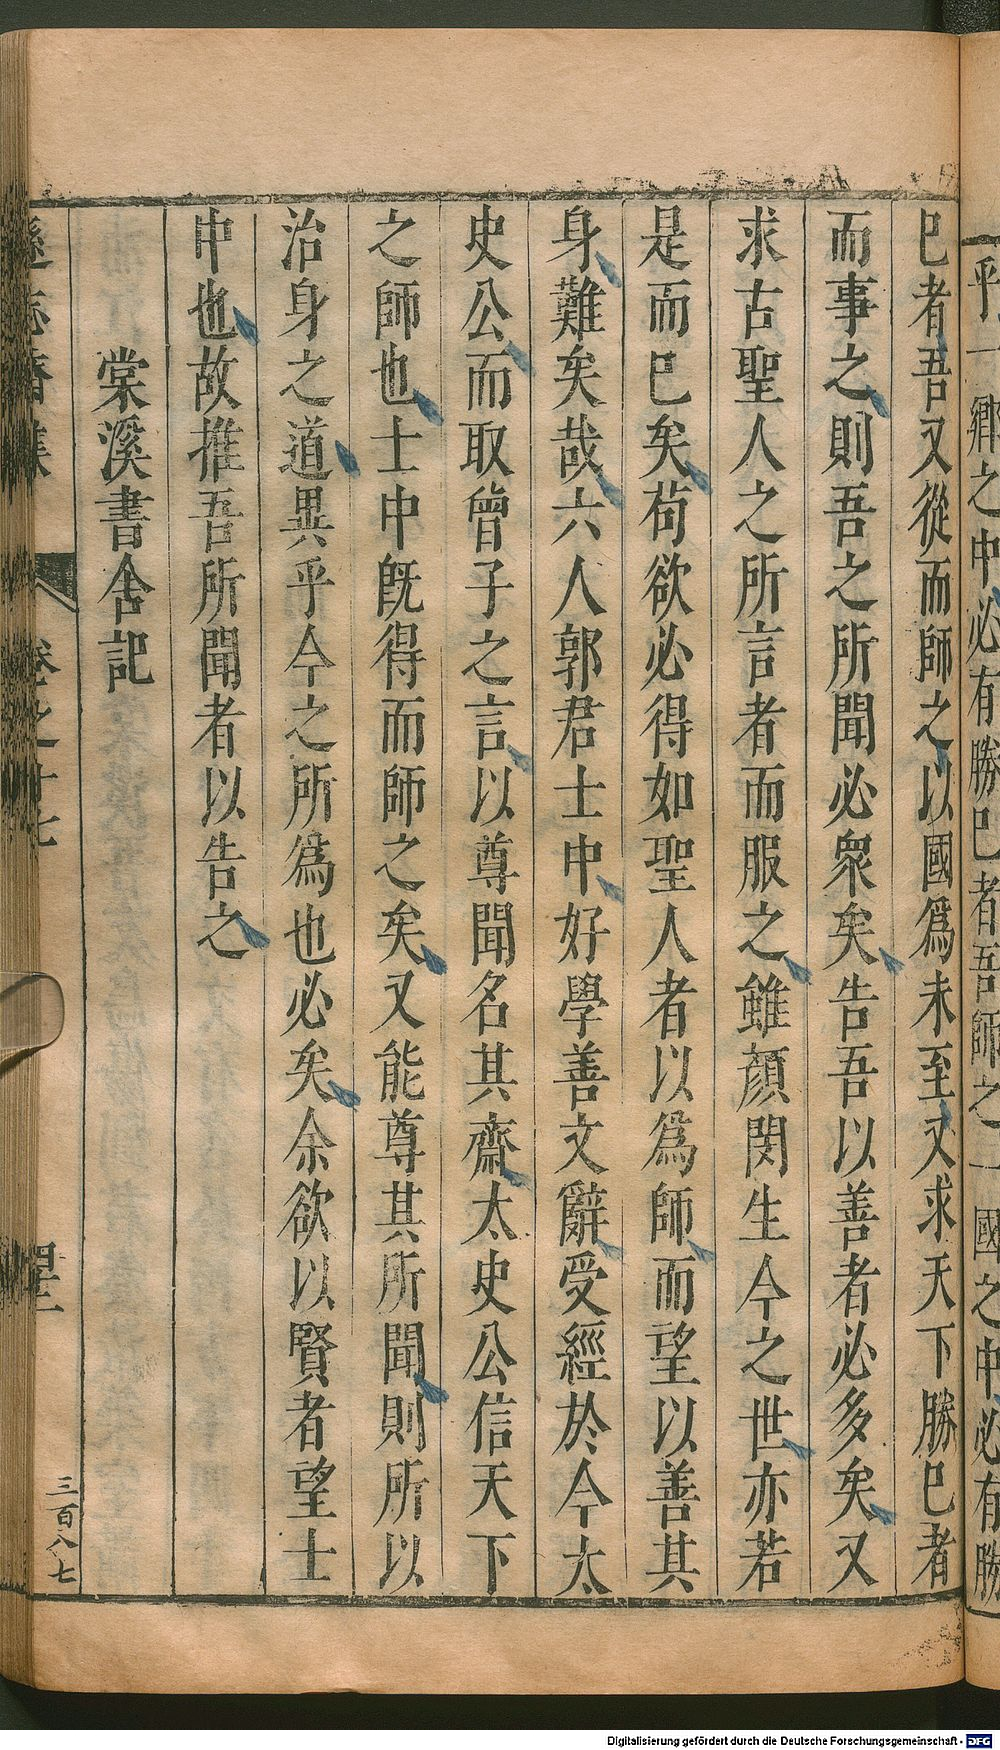 乎一鄉之中必有勝已者吾師之一國之中必有勝
已者吾又從而師之以國爲未至又求天下勝已者
而事之則吾之所聞必衆矣告吾以善者必多矣又
求古聖人之所言者而服之雖顔閔生今之世亦若
是而已矣苟欲必得如聖人者以爲師而望以善其
身難矣哉六人郭君士中好學善文辭受經於今太
史公而取曾子之言以尊聞名其齋太史公信天下
之師也士中旣得而師之矣又能尊其所聞則所以
治身之道異乎今之所爲也必矣余欲以賢者望士
中也故推吾所聞者以告之
棠溪書舍記
遜志齋集
卷之十七
三百八七
Digitalisierung gefördert durch die Deutsche Forschungsgemeinschaft - DFG